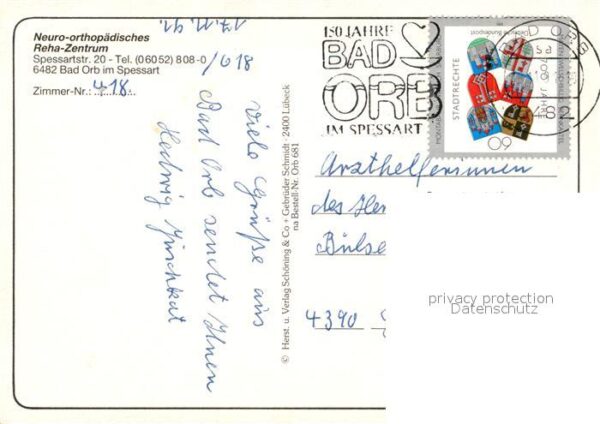 Neuro-orthopädisches
Reha-Zentrum
Spessartstr. 20 - Tel. (06052) 808-0 /618
6482 Bad Orb im Spessart
Zimmer-Nr.: 418
17.11.92.
Viele Grüße aus
Bad Orb sendet Ihnen
Hedwig
© Herst. u. Verlag Schöning & Co + Gebrüder Schmidt · 2400 Lübeck
na Bestell-Nr. Orb 681
150 JAHRE
BAD
ORB
IM SPESSART
BAD ORB
Deutsche Bundespost
700 JAHRE
STADTRECHTE
60
Arzthelferinnen
des
4390
privacy protection
Datenschutz